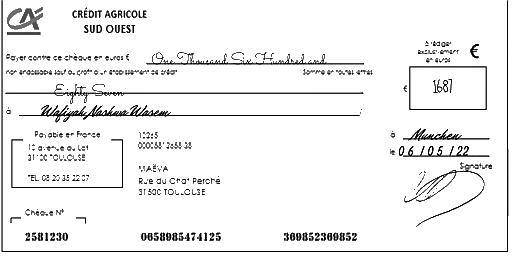 CA
CRÉDIT AGRICOLE
SUD OUEST
à rédiger
exclusivement
en euros
€
Payer contre ce chèque en euros € One Thousand Six Hundred and
non endossable sauf au profit d'un établissement de crédit Somme en toutes lettres
Eighty Seven
€ 1687
à Wafiyah Nashwa Wasem
Payable en France
10 avenue du Lot
31100 TOULOUSE
TEL. 08 20 35 22 07
10265
00005812658 38
MAËVA
Rue du Chat Perché
31500 TOULOUSE
à Munchen
le 06/05/22
Signature
Chèque N°
2581230 0658985474125 369852369852